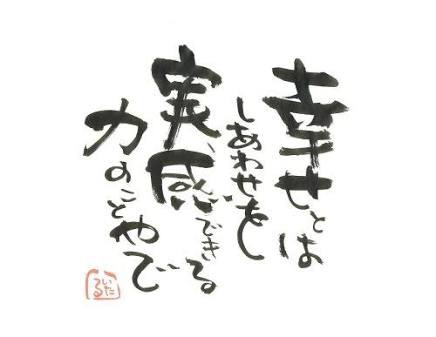 幸せとは
しあわせを
実感できる
力のことやで
いただる